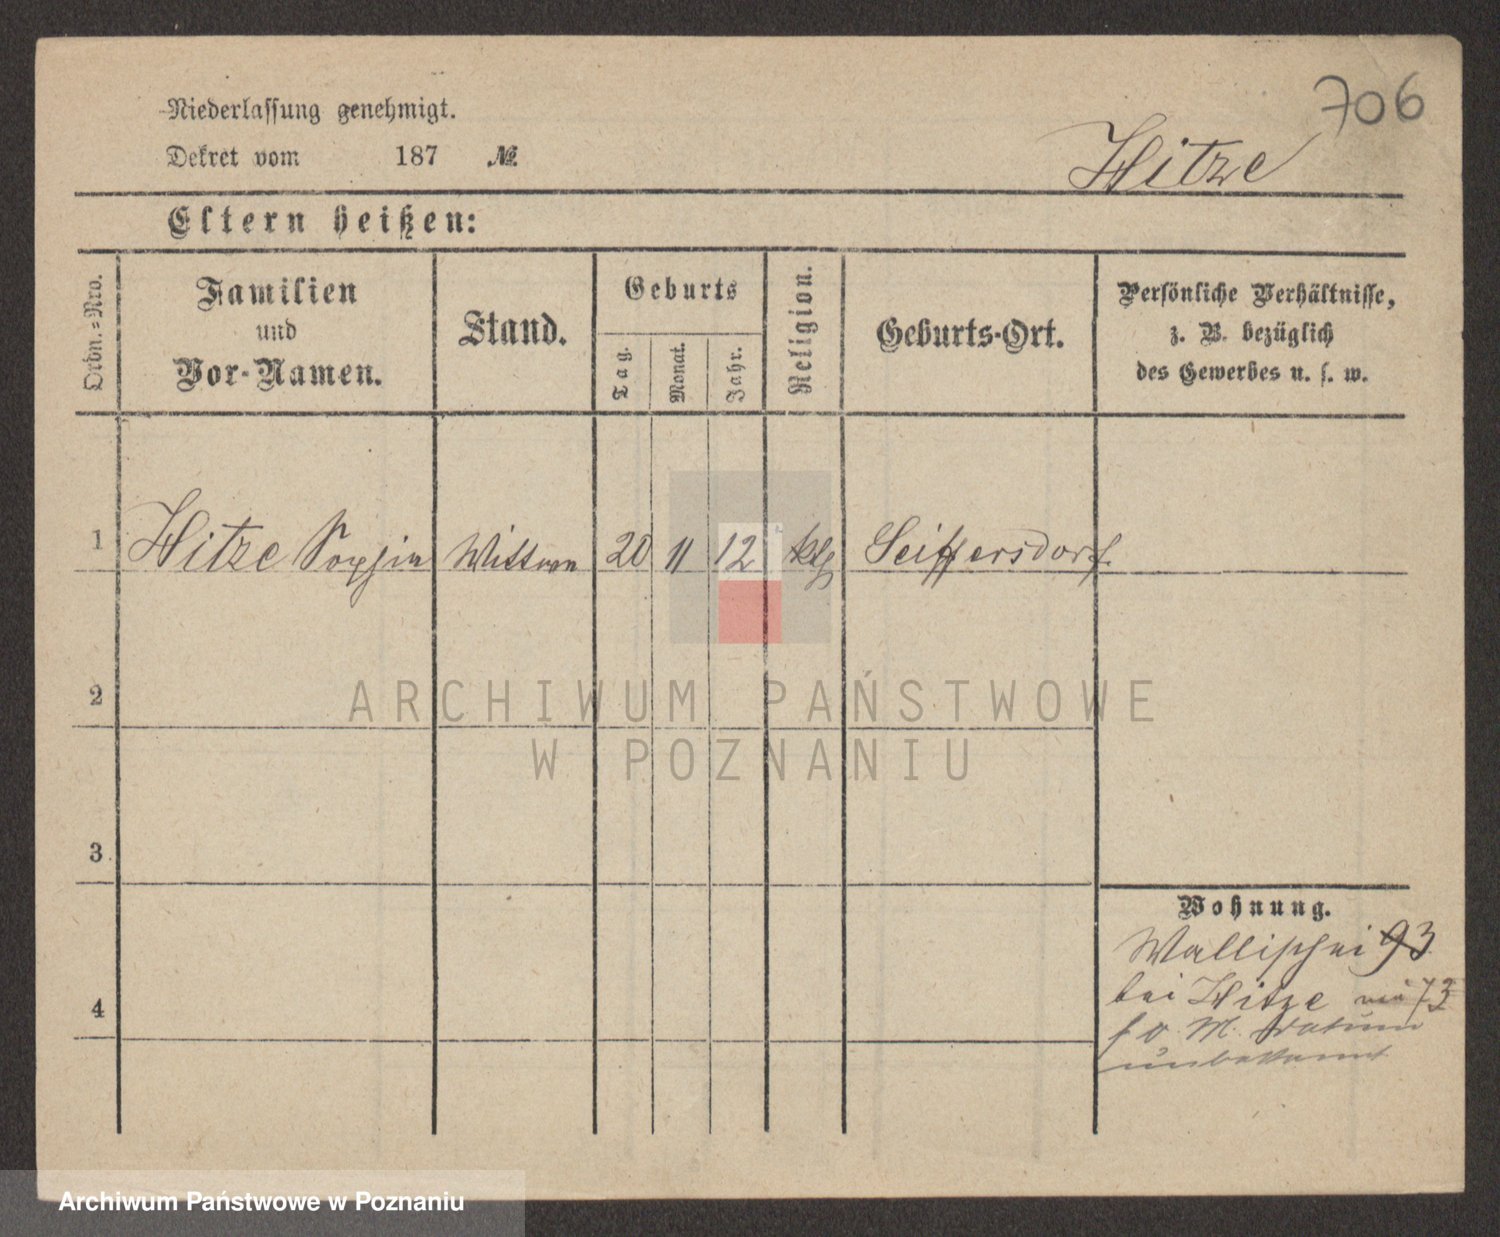 706
Niederlassung genehmigt.
Dekret vom 187 №
Hitze
Eltern heißen:
Ordn.=Nro.
Familien
und
Vor-Namen.
Stand.
Geburts
Tag.
Monat.
Jahr.
Religion.
Geburts-Ort.
Persönliche Verhältnisse,
z. B. bezüglich
des Gewerbes u. s. w.
1 Hitze Sophie Wittwe 20 11 12 kth Seiffersdorf.
2
ARCHIWUM PAŃSTWOWE
W POZNANIU
3
Wohnung.
Wallischei 93
bei Hitze 73
4
M. Datum
unbekannt
Archiwum Państwowe w Poznaniu